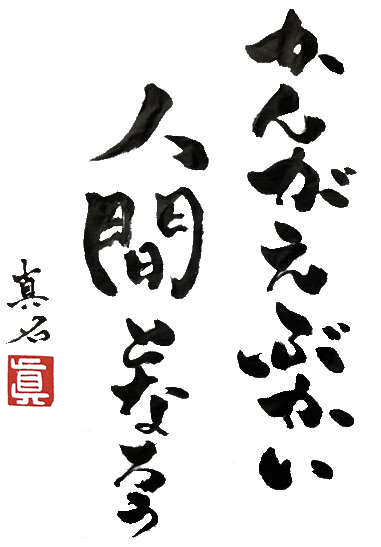 かんがえぶかい
人間となろう
真石
眞